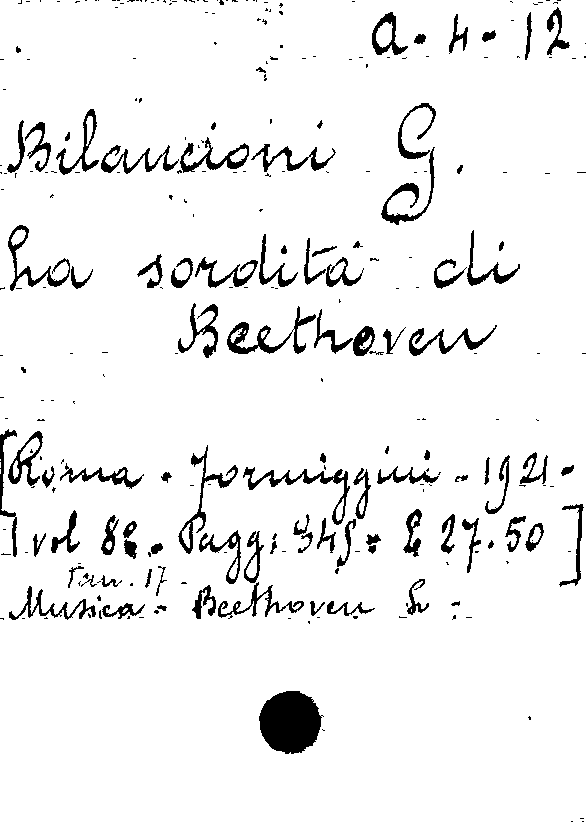 a. 4. 12
Bilancioni G.
La sordità di
Beethoven
[Roma - Formiggini - 1921 -
1 vol 8º. Pagg: 345 = £ 27.50]
Tav. 17 -
Musica - Beethoven L -